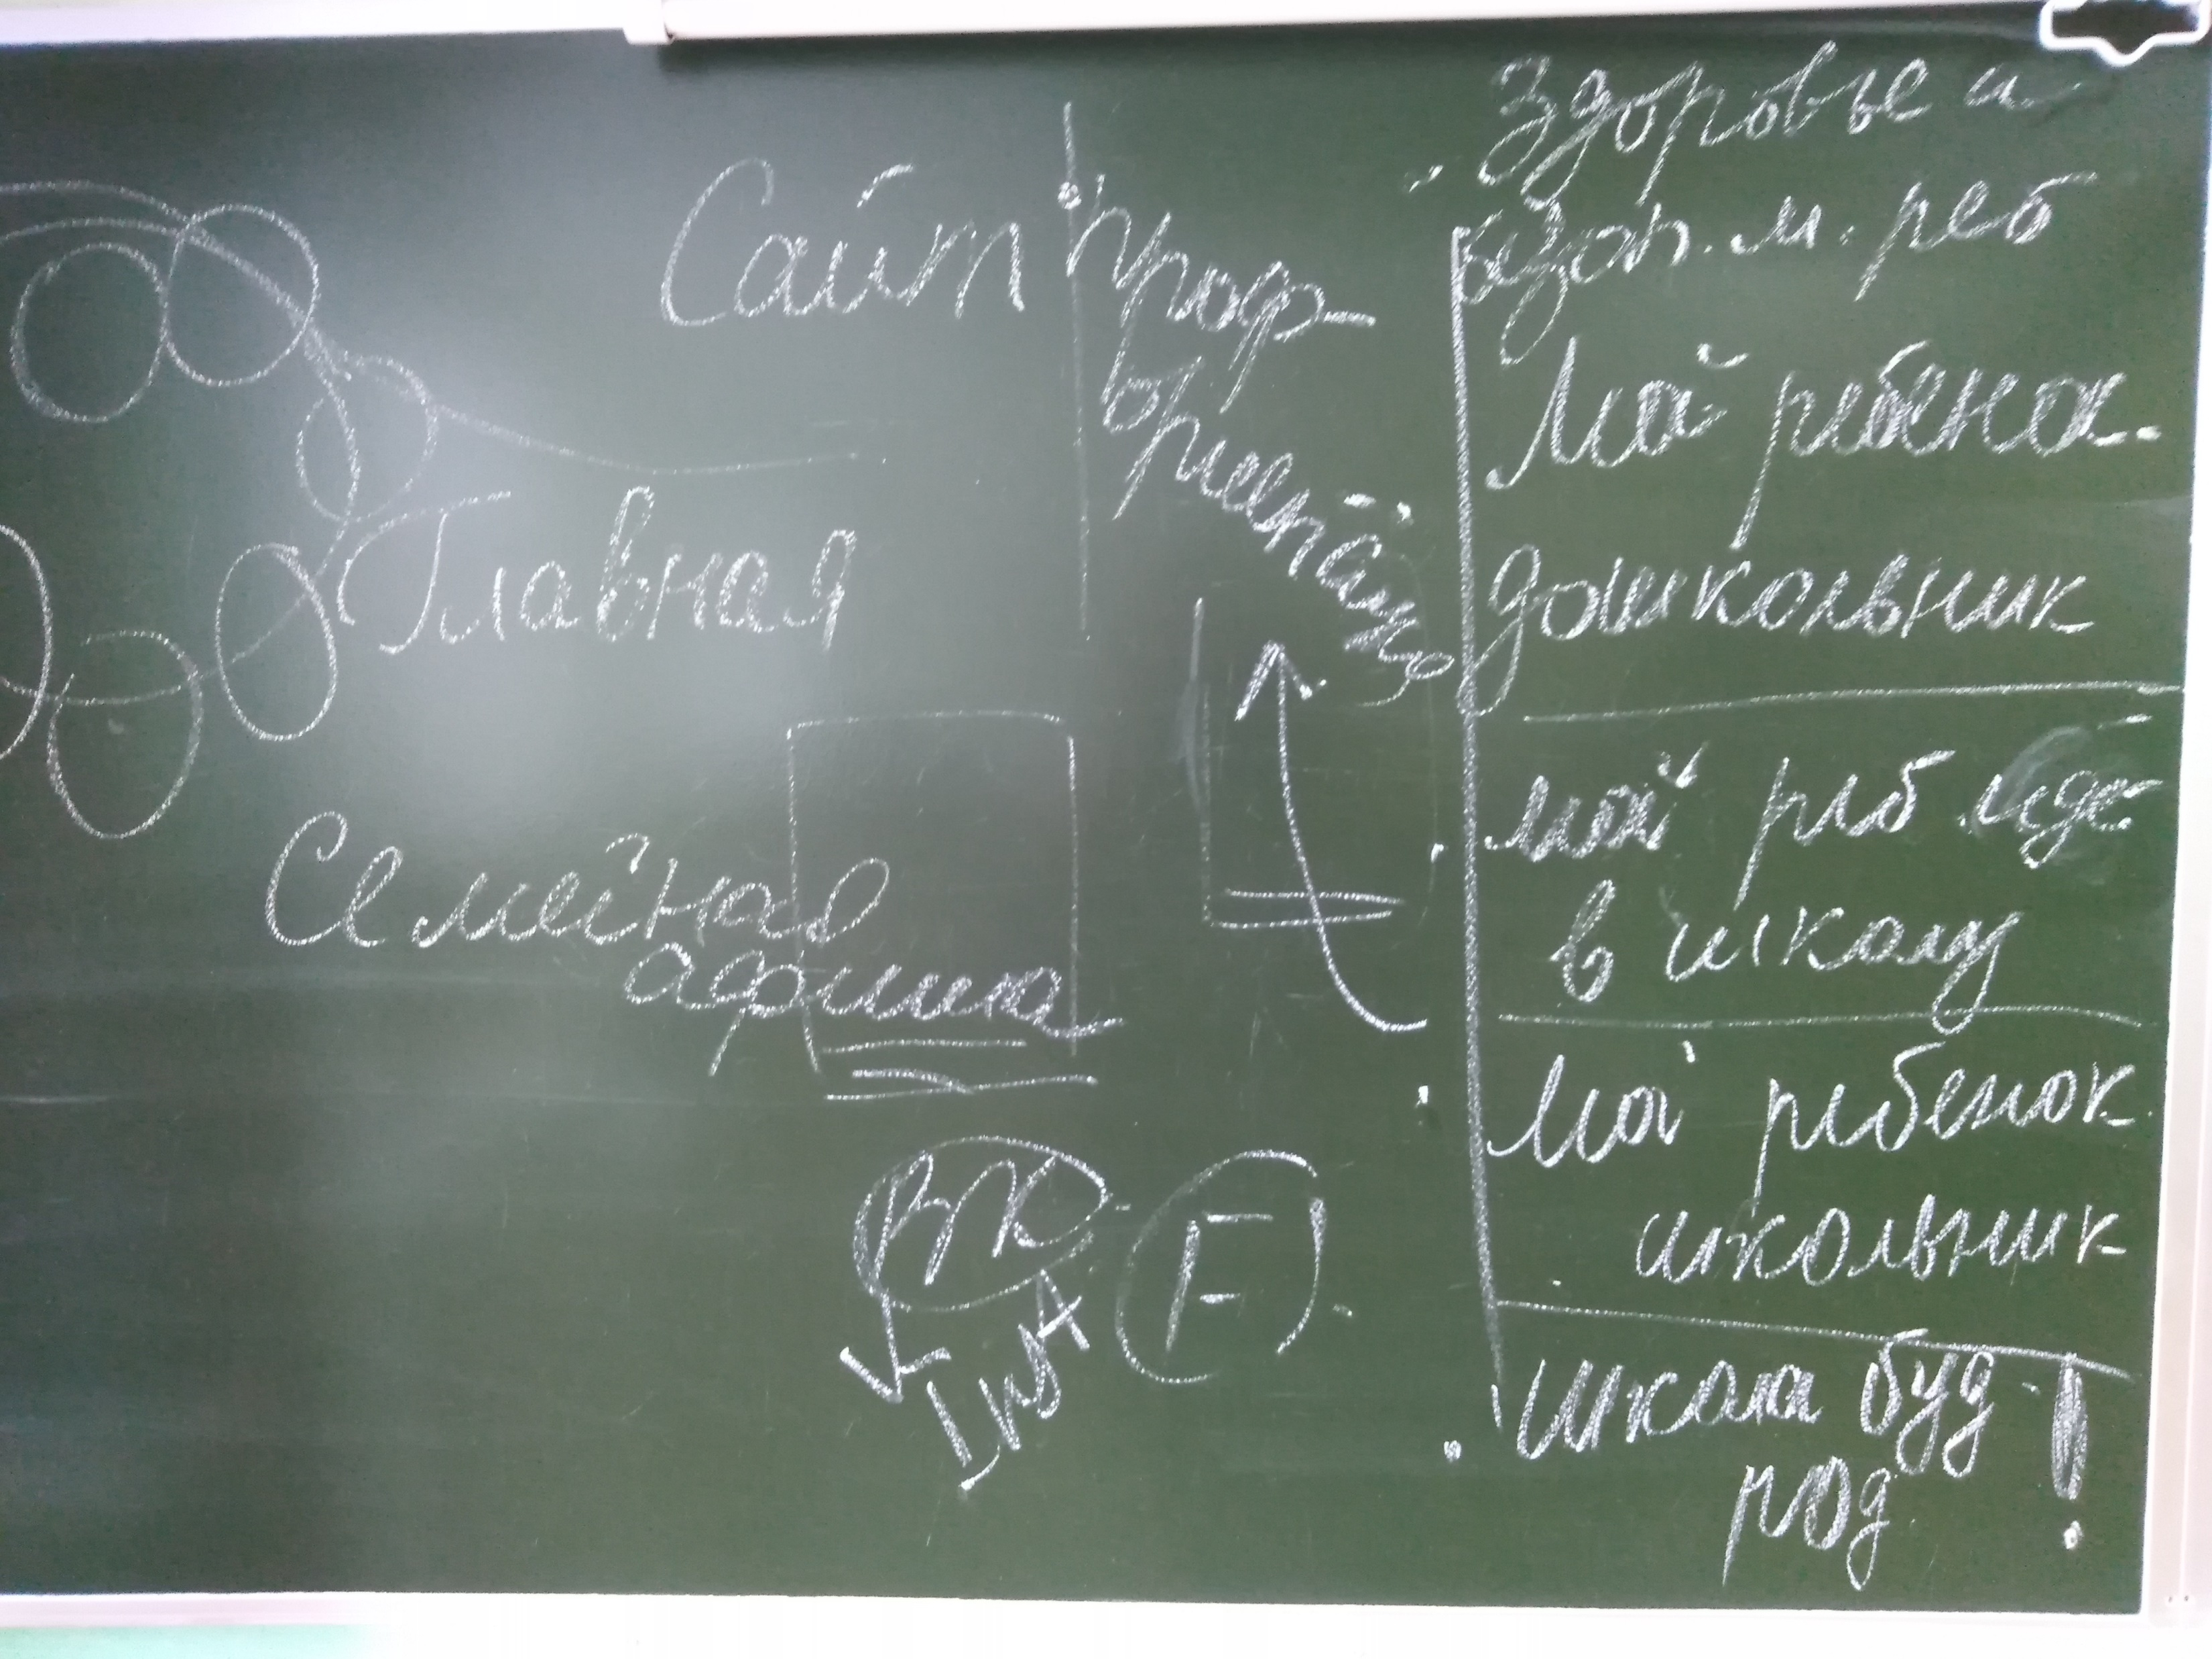 Сайт
Главная
Семейная
афиша
ВК
InstA
F
Проф-
ориентац
Здоровье и
безоп. м. реб
Мой ребенок-
дошкольник
мой реб. идё
в школу
Мой ребенок
школьник
Школа буд.
род !